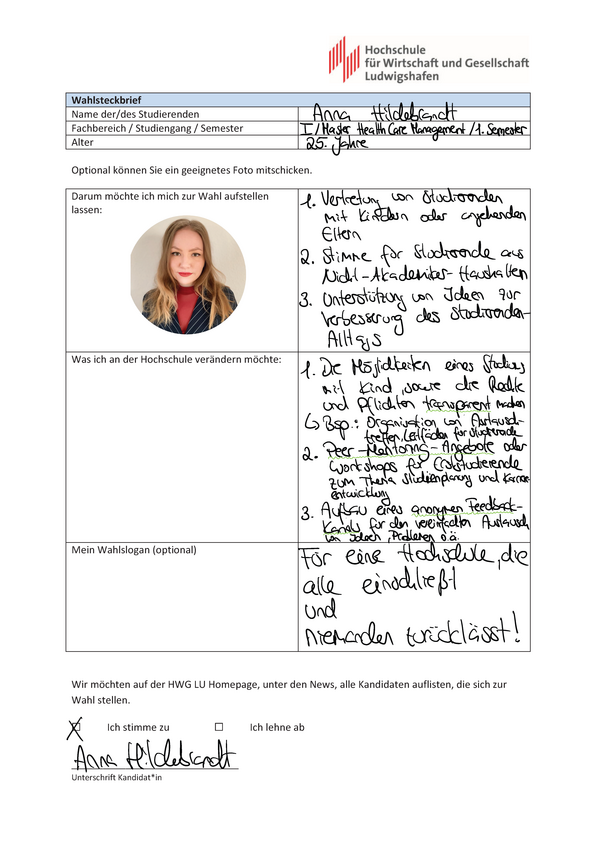 Hochschule
für Wirtschaft und Gesellschaft
Ludwigshafen
Wahlsteckbrief
Name der/des Studierenden
Anna Hildebrandt
Fachbereich / Studiengang / Semester
I / Master Health Care Management / 1. Semester
Alter
25. Jahre
Optional können Sie ein geeignetes Foto mitschicken.
Darum möchte ich mich zur Wahl aufstellen
lassen:
1. Vertretung von Studierenden
mit Kindern oder angehenden
Eltern
2. Stimme für Studierende aus
Nicht-Akademiker-Haushalten
3. Unterstützung von Ideen zur
Verbesserung des Studierenden-
Alltags
Was ich an der Hochschule verändern möchte:
1. Die Möglichkeiten eines Studiums
mit Kind, sowie die Rechte
und Pflichten transparent machen
↳ Bsp.: Organisation von Austausch-
treffen, Leitfäden für Studierende
2. Peer-Mentoring-Angebote oder
Workshops für Erststudierende
zum Thema Studienplanung und Karriere-
entwicklung
3. Aufbau eines anonymen Feedback-
Kanals für den vereinfachten Austausch
von Ideen, Problemen o.ä.
Mein Wahlslogan (optional)
Für eine Hochschule, die
alle einschließt
und
niemanden zurücklässt!
Wir möchten auf der HWG LU Homepage, unter den News, alle Kandidaten auflisten, die sich zur
Wahl stellen.
☒ Ich stimme zu ☐ Ich lehne ab
Anna Hildebrandt
Unterschrift Kandidat*in